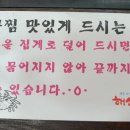 찜 맛있게 드시는
을 집게로 덮어 드시면
풀어지지 않아 끝까지
있습니다.·0·
해